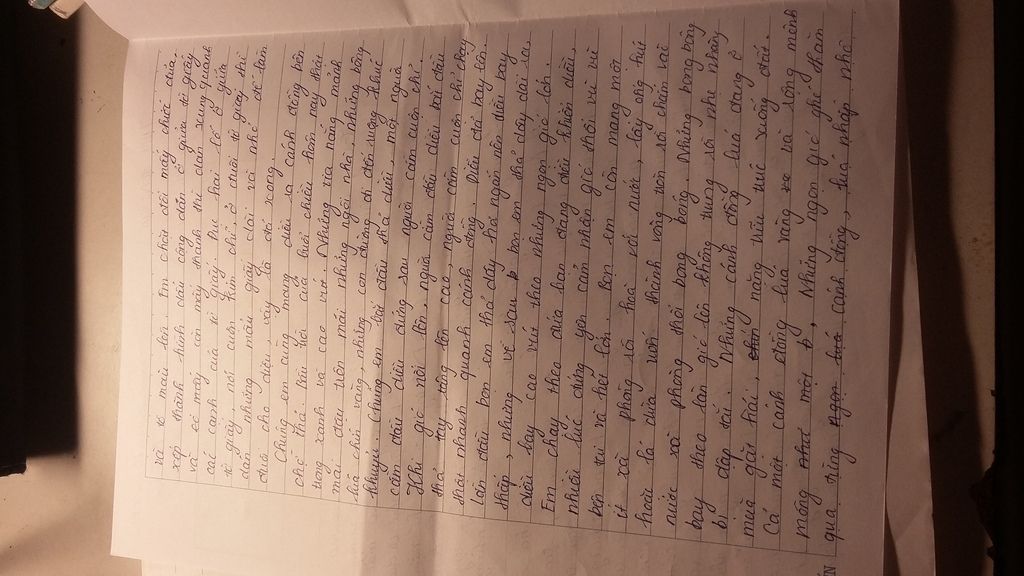 và tô màu lên. Em chờ đợi mấy chiếc dừa,
xếp thành hình dấu cộng dán ở giữa tờ giấy
và xé mấy cái này thành thú dán xung quanh
các cạnh của tờ giấy. Đục hai lỗ ở giữa
tờ giấy, nối cuộn kim chỉ ở dưới tờ giấy thì
dán những mẩu giấy dài và nhỏ để làm
đuôi cho diều, vậy là đã xong.
Chúng em cùng mang diều ra cánh đồng bên
chế thả. Bầu trời của buổi chiều hôm nay thật
trong xanh và cao vút. Những tia nắng mảnh
mai đậu trên mái những ngôi nhà, những bông
lúa chín vàng, những con đường đi đến ruộng khuế
khuỷu. Chúng em bắt đầu thả diều, một người
cầm đầu diều đứng sau, người cầm cuộn chỉ.
Khi gió nổi lên, người cầm đầu diều bắt đầu
thả tay, tâng lên cao, người cầm cuộn chỉ chạy
thật nhanh quanh cánh đồng. Diều đã bay lên.
Lần đầu bọn em thả dây thả ngắn nên diều bay
thấp, nhưng về sau bọn em thả dây dài ra,
diều bay cao vút theo những ngọn gió lớn.
Em chạy theo đứa bạn đang điều khiển diều,
nhiều lúc đứng yên cảm nhận gió thổi vù vù
bên tai và hét lên. Bọn em còn mang một
ít xà phòng rồi hoà với nước, lấy ống hút
hoặc lá dừa uốn thành vòng tròn rồi chấm vài
nước xà phòng thổi bong bóng. Những bong bóng
bay theo làn gió lên không trung rồi nhẹ nhàng
bị đáp tới. Những cánh đồng lúa đang ở
mùa gặt hái, nặng trĩu trục xuống đất.
Cả một cánh đồng lúa vàng và rộng mênh
mông một. Những ngọn gió ghé thăm
qua từng cánh đồng, lúa nhấp nhô